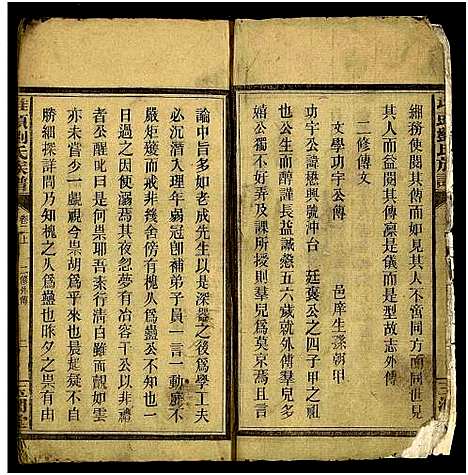 細務使閱其傳而如見其人不啻同方同世見
其人而益閱其傳凛是儀而是型故志外傳
二修傳文
文學功宇公傳
邑庠生孫朝甲
功宇公諱懋興號沖台 廷褒公之四子甲之祖
也公生而醇謹長益誠慤五六歲就外傳羣兒
嬉公獨不好弄及課所授則羣兒爲莫京焉且言
論中旨多如老成先生以是深器之後爲學工夫
必沉潛入理年弱冠卽補弟子員一言一動罄不
嚴炬蹉而戒非幾舍傍有槐人爲蠱公不知也一
日過之因使溺焉其夜忽夢有冶容干公以非禮
者公醒叱曰是何祟耶吾素行清白雖而覿如雲
亦未嘗少一覷視今祟胡爲乎來也晨起疑不自
勝細採詳問乃知槐之人爲蠱也昨夕之祟有由
劉氏族譜
卷二十
二修外傳